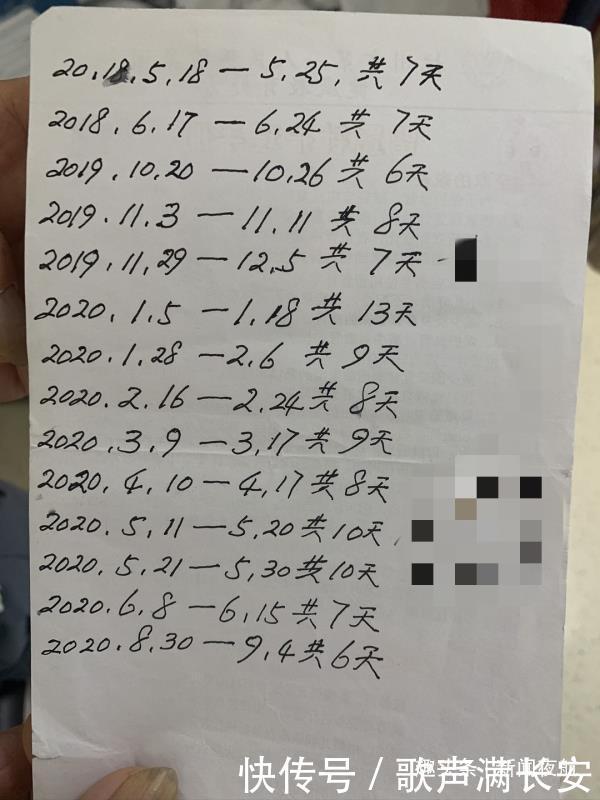 2018.5.18 — 5.25, 共7天
2018.6.17 — 6.24 共 7天
2019.10.20 — 10.26 共 6天
2019.11.3 — 11.11 共 8天
2019.11.29 — 12.5 共 7天
2020.1.5 — 1.18 共 13天
2020.1.28 — 2.6 共 9天
2020.2.16 — 2.24 共 8天
2020.3.9 — 3.17 共 9天
2020.4.10 — 4.17 共 8天
2020.5.11 — 5.20 共 10天
2020.5.21 — 5.30 共 10天
2020.6.8 — 6.15 共 7天
2020.8.30 — 9.4 共 6天
快传号 / 歌声满长安